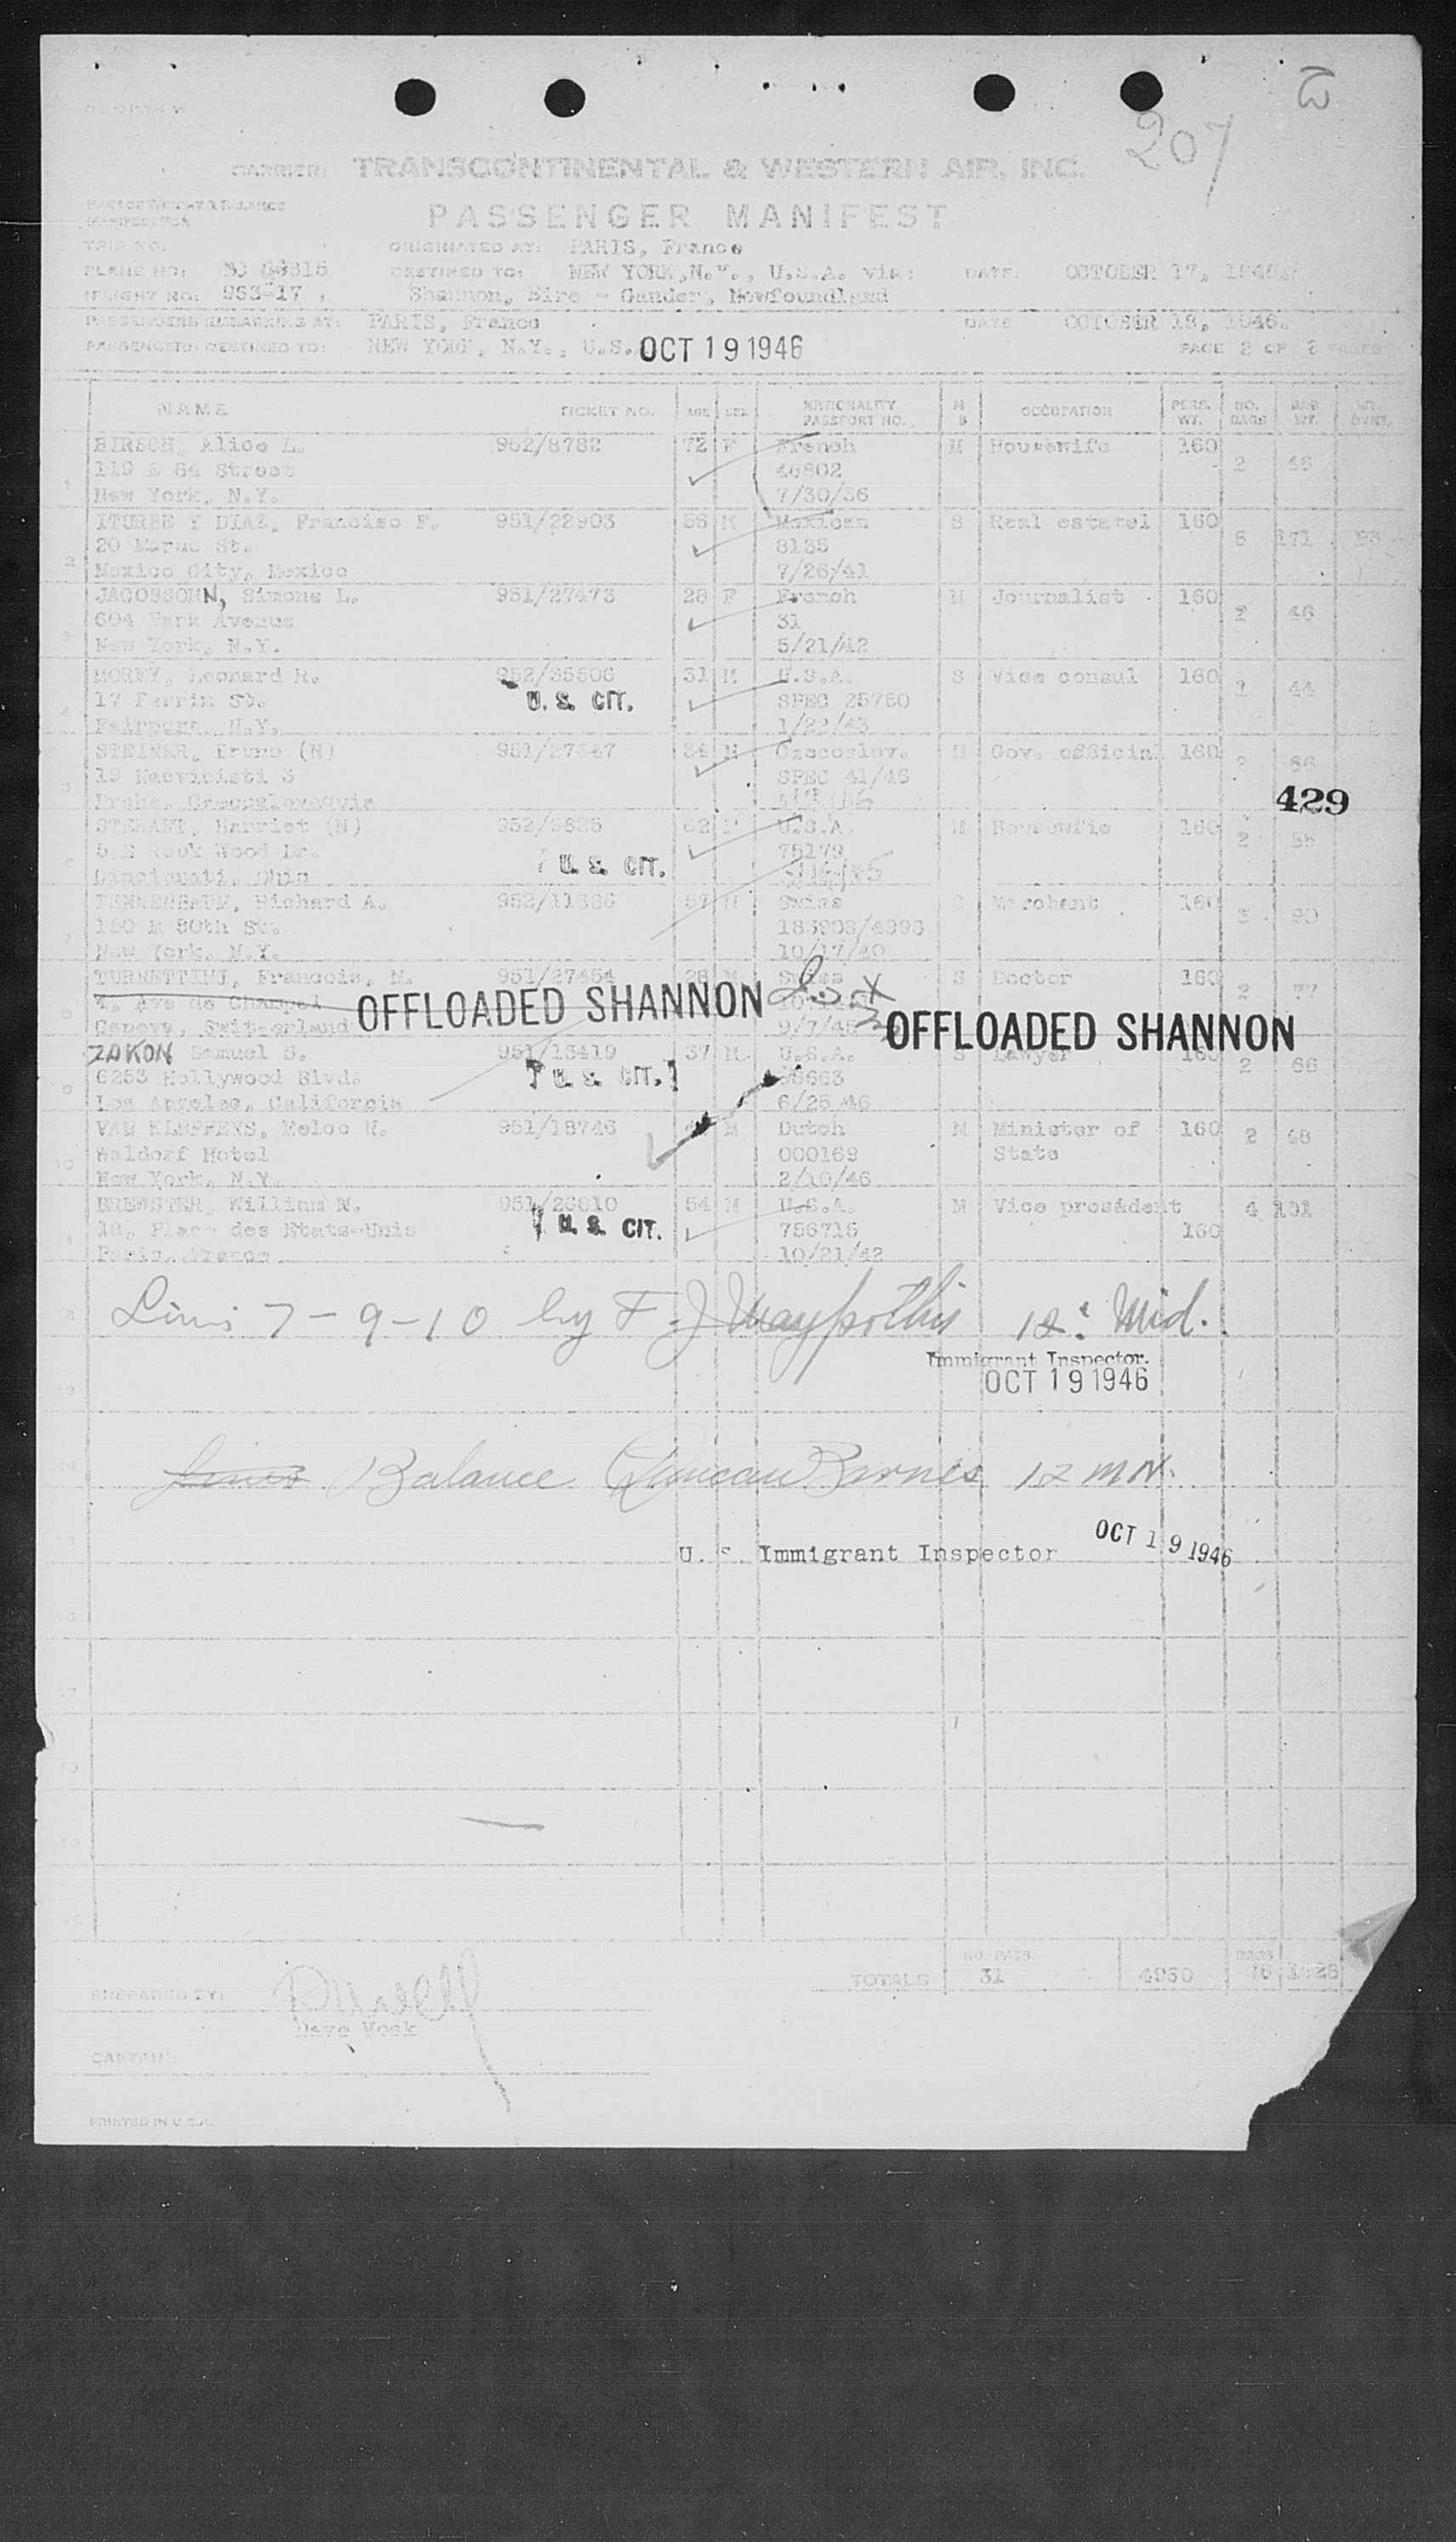 207
CARRIER: TRANSCONTINENTAL & WESTERN AIR, INC.
PASSENGER MANIFEST
TRIP NO: ORIGINATED AT: PARIS, France
PLANE NO: DESTINED TO: NEW YORK, N.Y., U.S.A. via: DATE: OCTOBER 17, 1946
FLIGHT NO: 963-17 Shannon, Eire - Gander, Newfoundland
PASSENGERS EMBARKING AT: PARIS, France DATE OCTOBER 18, 1946.
PASSENGERS DESTINED TO: NEW YORK, N.Y., U.S. OCT 19 1946 PAGE 2 OF
NAME TICKET NO. AGE SEX NATIONALITY PASSPORT NO. M S OCCUPATION PERS. WT. NO. BAGS BAG WT.
HIRSCH, Alice L. 952/8782 72 F French M Housewife 160
119 E 84 Street 46802 2 46
1 New York, N.Y. 7/30/36
ITURBE Y DIAZ, Francisc F. 951/22903 56 M Mexican S Real estatel 160
20 St. 8135 6 171
2 Mexico City, Mexico 7/26/41
JACOBSOHN, Simone L. 951/27473 28 F French M Journalist 160
604 Park Avenue 31 2 46
3 New York, N.Y. 5/21/42
MOREY, Leonard R. 952/35506 31 M U.S.A. S Vice consul 160
17 Perrin St. U. S. CIT. SPEC 25760 44
4 Fairport, N.Y. 1/22/43
STEINER, Bruno (N) 951/27447 34 M Czecoslov. Gov. official 160
19 SPEC 41/46 2 66
429
STEWART, Harriet (N) 952/9825 62 F U.S.A. M Housewfie 160
5 E Rook Wood Dr. U. S. CIT. 75179 2 55
Cincinnati, Ohio
TENNENBAUM, Richard A. 952/11886 57 M Swiss Merchant 160
150 E 80th St. 3 90
7 New York, N.Y. 10/17/40
TURRETTINI, Francois, M. 951/27454 28 M Swiss S Doctor 160
4, Ave de Champel OFFLOADED SHANNON 2 77
8 Geneve, Switzerland OFFLOADED SHANNON
ZAKON Samuel S. 951/15419 37 M U.S.A. S Lawyer 160
6253 Hollywood Blvd. U. S. CIT. 2 66
9 Los Angeles, California 6/25/46
VAN KLEFFENS, Eelco N. 951/18746 M Dutch M Minister of 160
Waldorf Hotel 000169 State 2 48
10 New York, N.Y. 2/10/46
BREWSTER, William N. 951/26810 54 M U.S.A. M Vice president 4 101
18, Place des Etats-Unis U. S. CIT. 756715 160
11 Paris, France 10/21/42
7-9-10 by F J 12: Mid.
Immigrant Inspector.
OCT 19 1946
Lines Balance Duncan Barnes 12 MN.
U. S. Immigrant Inspector OCT 19 1946
TOTALS NO. PASS. 31 4960 BAGS 76
PREPARED BY:
Dave
CAPTAIN:
PRINTED IN U.S.A.